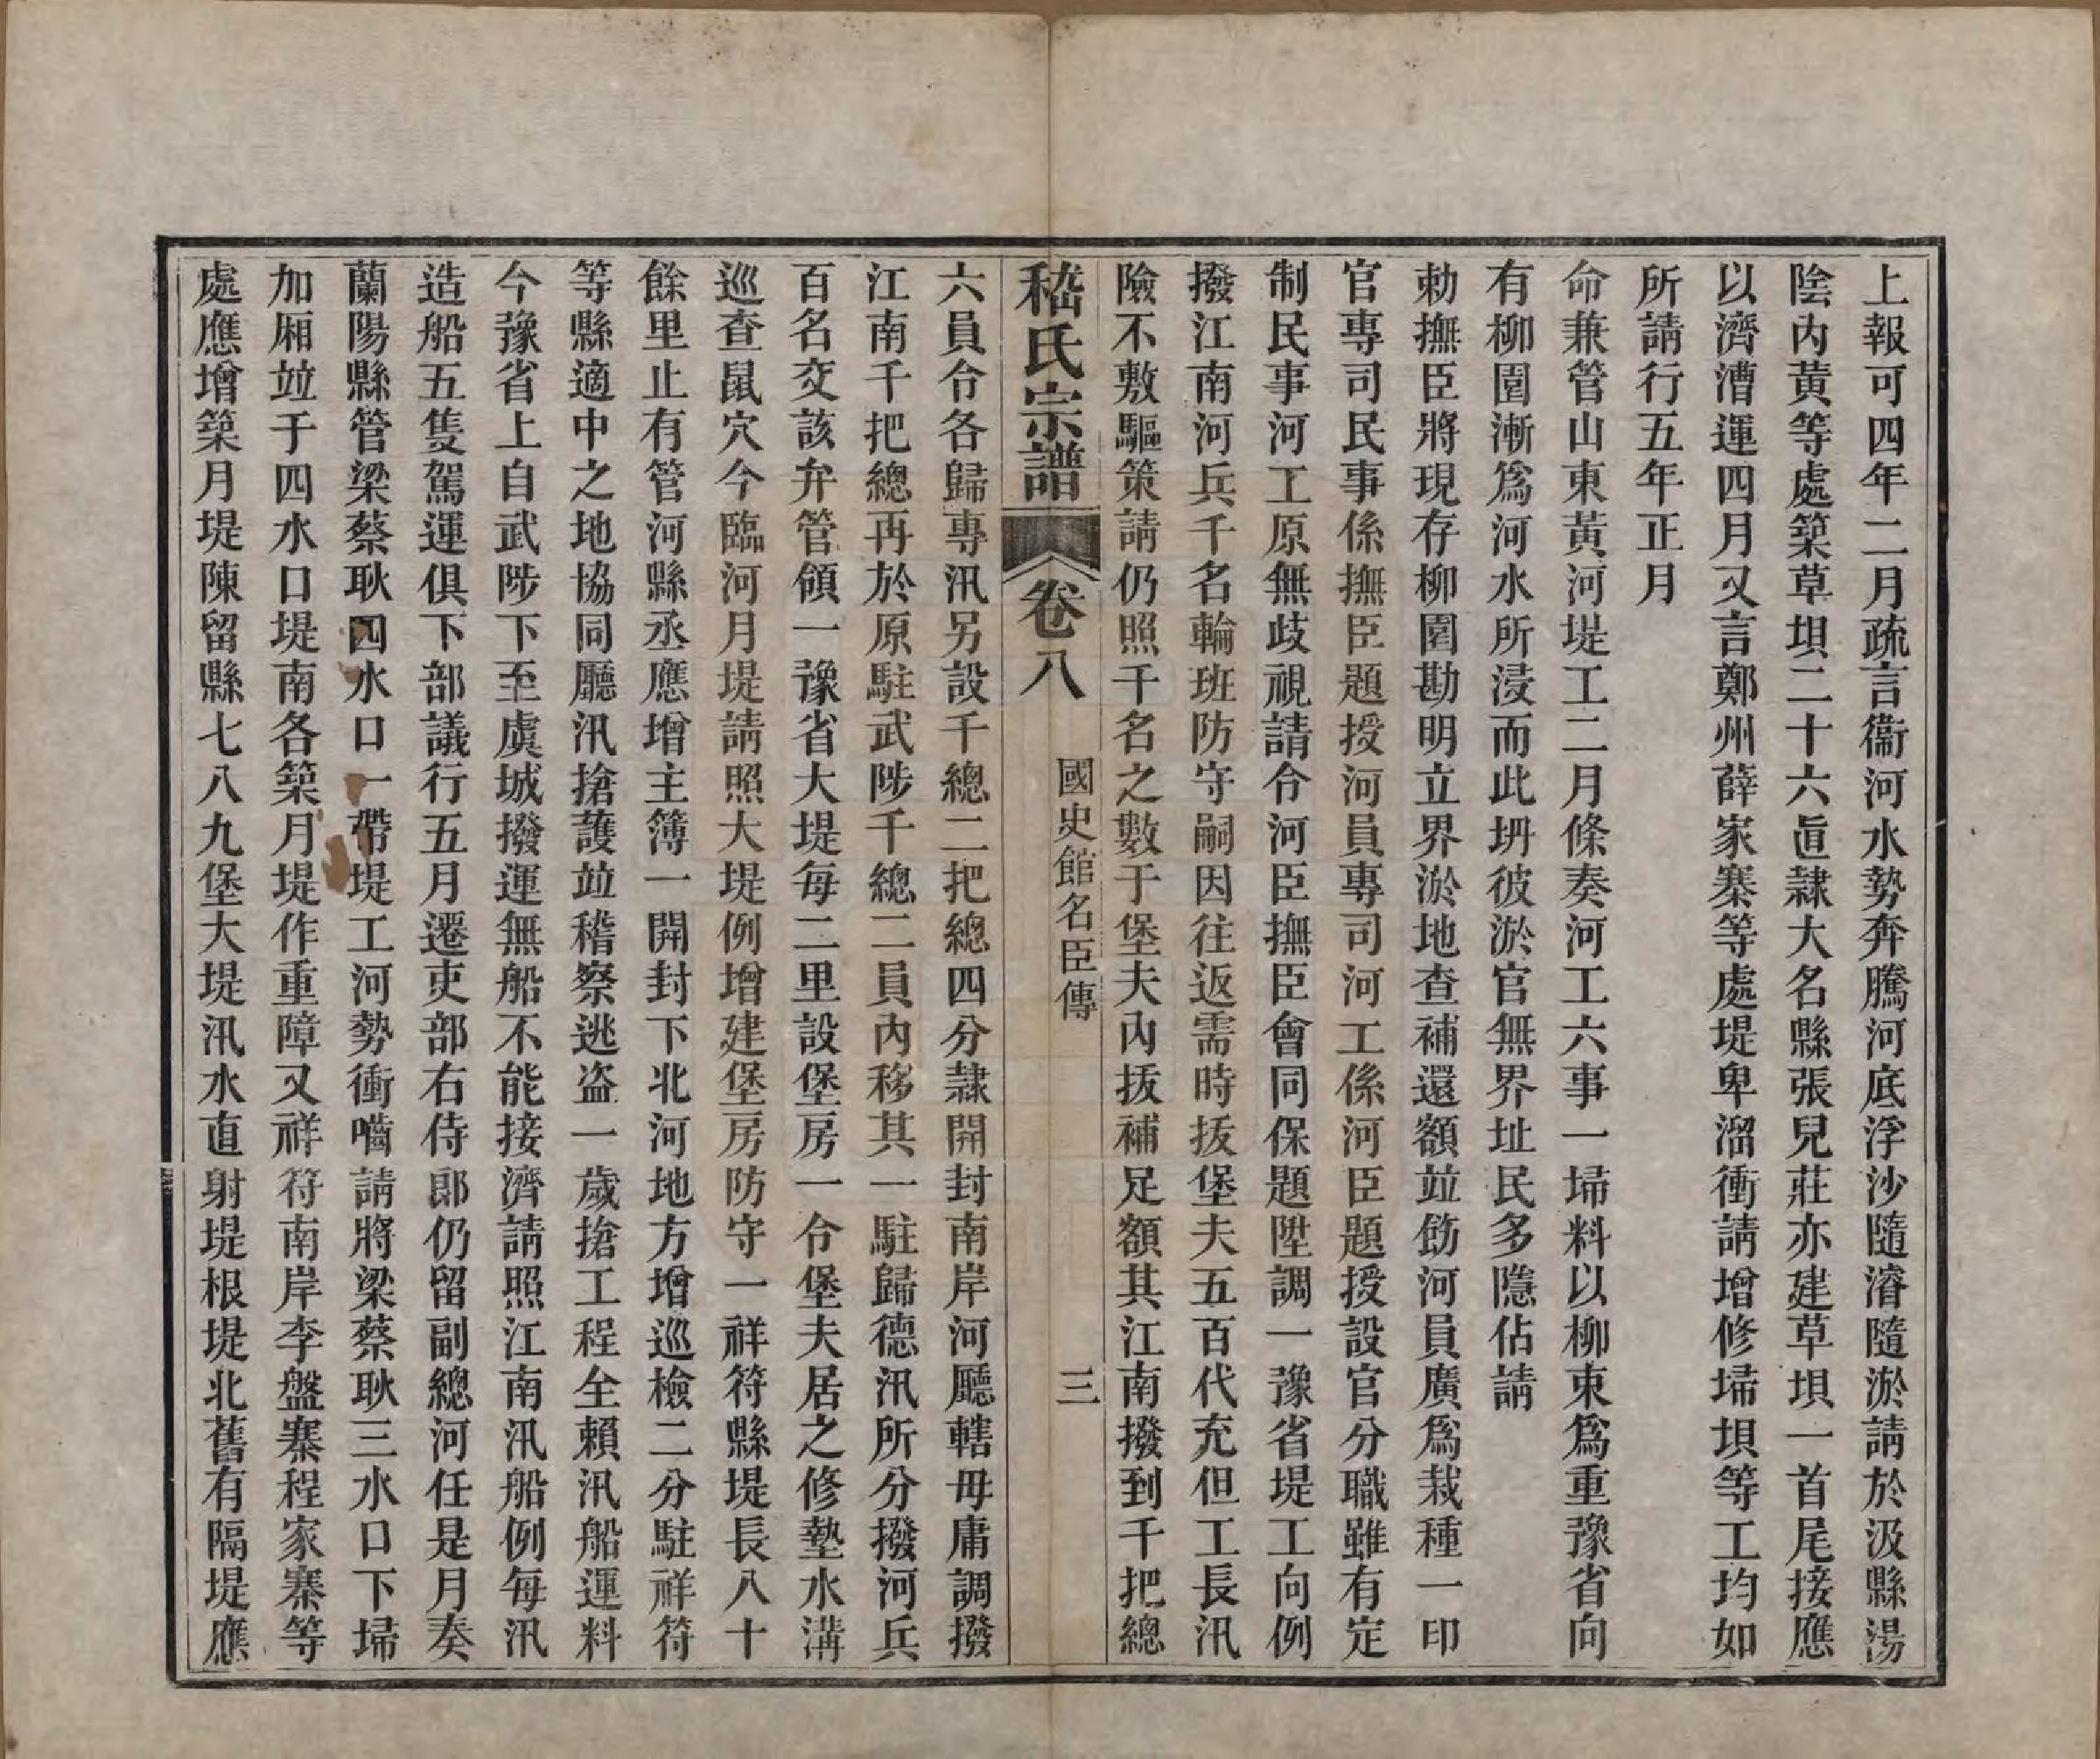 上報可四年二月疏言衞河水勢奔騰河底浮沙隨濬隨淤請於汲縣湯
陰內黃等處築草垻二十六直隷大名縣張兒莊亦建草垻一首尾接應
以濟漕運四月又言鄭州薛家寨等處堤卑溜衝請增修埽垻等工均如
所請行五年正月
命兼管山東黃河堤工二月條奏河工六事一埽料以柳束爲重豫省向
有柳園漸爲河水所浸而此坍彼淤官無界址民多隱佔請
勅撫臣將現存柳園勘明立界淤地查補還額竝飭河員廣爲栽種一印
官專司民事係撫臣題授河員專司河工係河臣題授設官分職雖有定
制民事河工原無歧視請令河臣撫臣會同保題陞調一豫省堤工向例
撥江南河兵千名輪班防守嗣因往返需時拔堡夫五百代充但工長汛
險不敷驅策請仍照千名之數于堡夫內拔補足額其江南撥到千把總
嵇氏宗譜 卷八 國史館名臣傳 三
六員令各歸專汛另設千總二把總四分隷開封南岸河廳轄毋庸調撥
江南千把總再於原駐武陟千總二員內移其一駐歸德汛所分撥河兵
百名交該弁管領一豫省大堤每二里設堡房一令堡夫居之修墊水溝
巡查鼠穴今臨河月堤請照大堤例增建堡房防守一祥符縣堤長八十
餘里止有管河縣丞應增主簿一開封下北河地方增巡檢二分駐祥符
等縣適中之地協同廳汛搶護竝稽察逃盜一歲搶工程全賴汛船運料
今豫省上自武陟下至虞城撥運無船不能接濟請照江南汛船例每汛
造船五隻駕運俱下部議行五月遷吏部右侍郎仍留副總河任是月奏
蘭陽縣管梁蔡耿四水口一帶堤工河勢衝嚙請將梁蔡耿三水口下埽
加厢竝于四水口堤南各築月堤作重障又祥符南岸李盤寨程家寨等
處應增築月堤陳留縣七八九堡大堤汛水直射堤根堤北舊有隔堤應